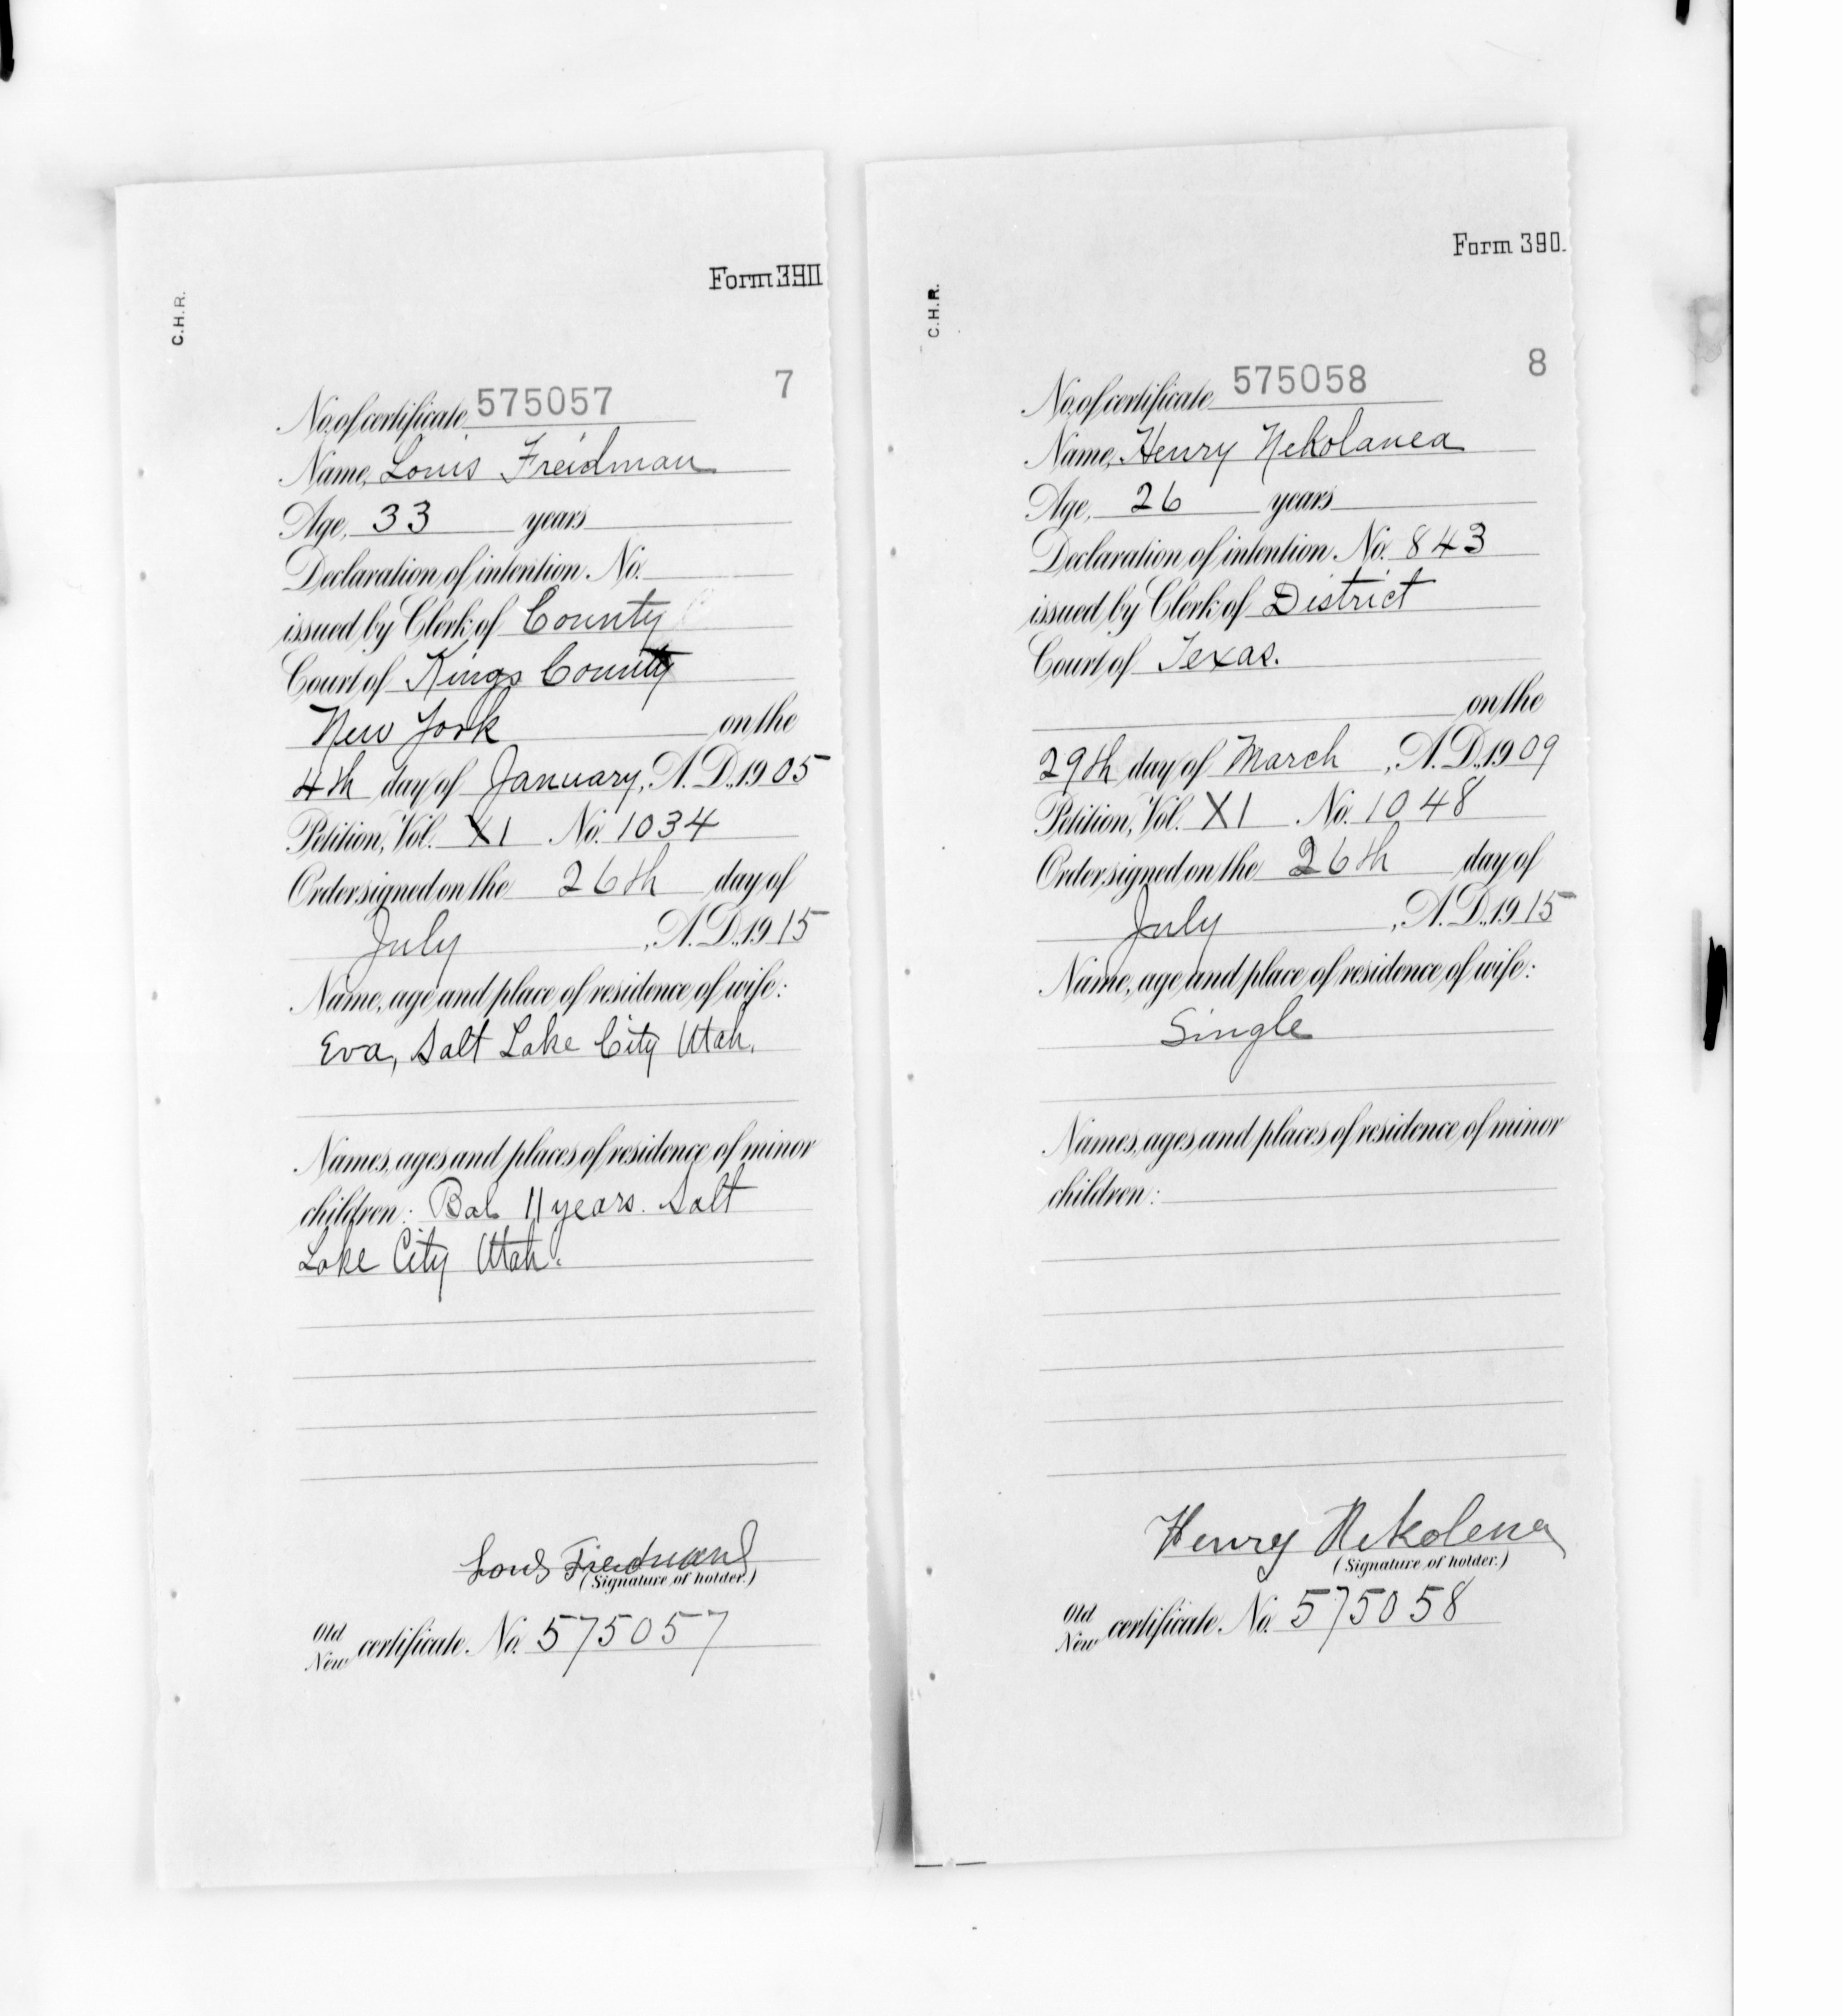 Form 390
C.H.R.
7
No. of certificate 575057
Name, Louis Freidman
Age, 33 years
Declaration of intention No.
issued by Clerk of County
Court of Kings County
New York on the
4th day of January, A.D. 1905
Petition, Vol. XI No. 1034
Order signed on the 26th day of
July, A.D. 1915
Name, age and place of residence of wife:
Eva, Salt Lake City Utah.
Names, ages and places of residence of minor
children: Bab 11 years. Salt
Lake City Utah.
Louis Friedman
(Signature of holder.)
Old
New certificate. No. 575057
Form 390.
C.H.R.
8
No. of certificate 575058
Name, Henry Nekolanea
Age, 26 years
Declaration of intention No. 843
issued by Clerk of District
Court of Texas.
on the
29th day of March, A.D. 1909
Petition, Vol. XI No. 1048
Order signed on the 26th day of
July, A.D. 1915
Name, age and place of residence of wife:
Single
Names, ages and places of residence of minor
children:
Henry Nekolena
(Signature of holder.)
Old
New certificate. No. 575058